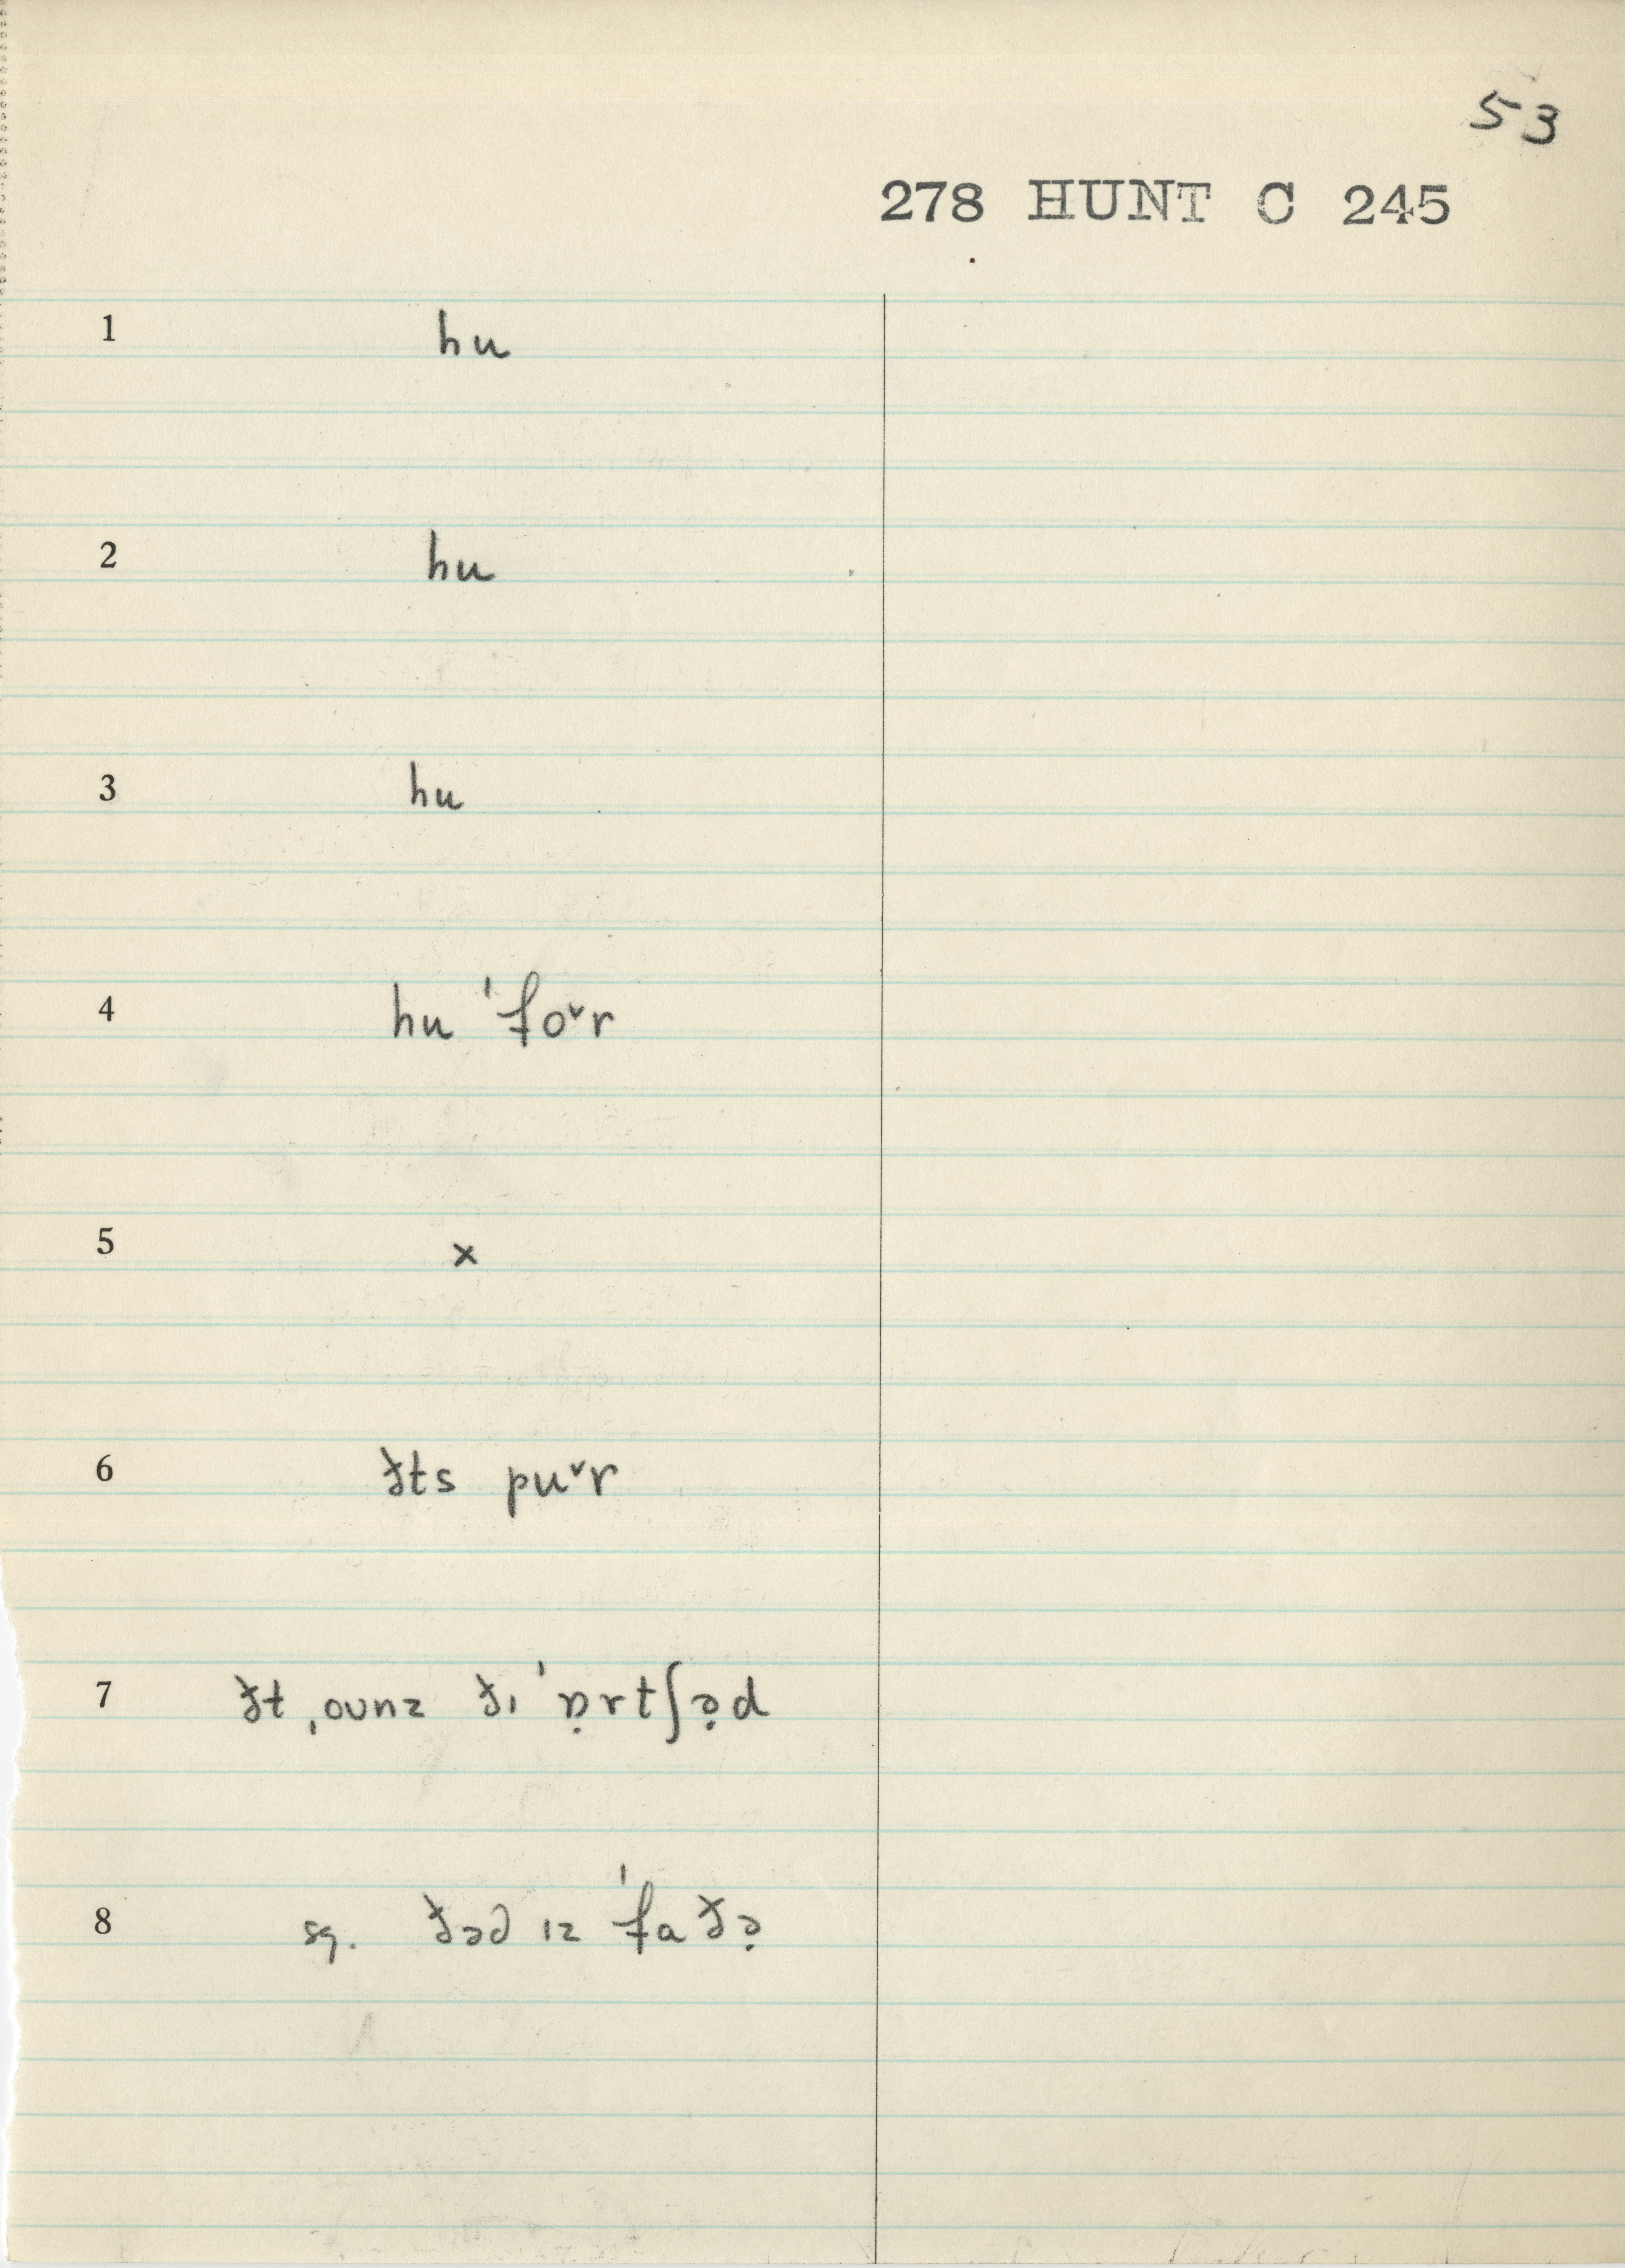 53
278 HUNT C 245
1 hu
2 hu
3 hu
4 hu ˈfo˅r
5 x
6 ðts pu˅r
7 ðt ˌounz ðɪ ˈɒ̣rtʃə̣d
8 sq. ðəə ɪz ˈfaðə̣